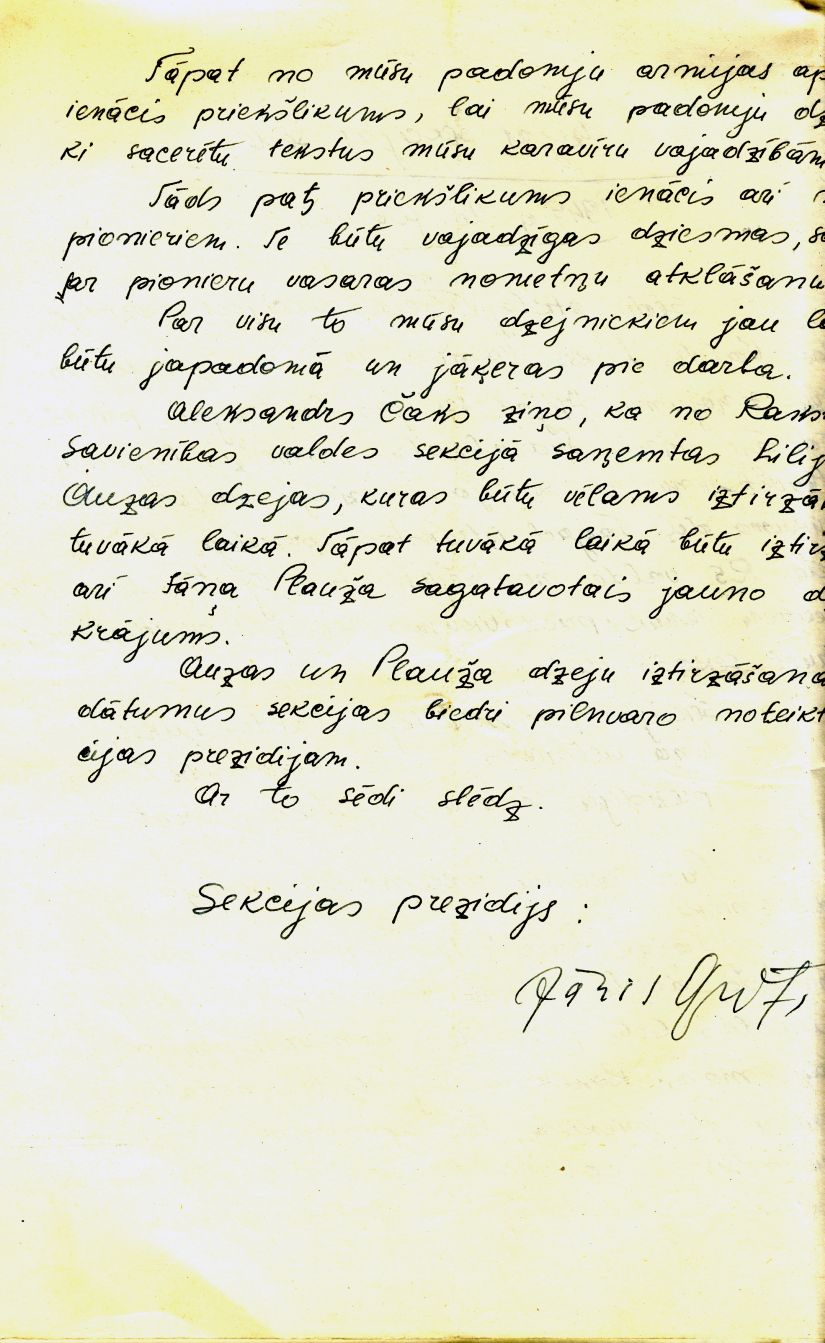 Tāpat no mūsu padomju armijas ap
ienācis priekšlikums, lai mūsu padomju dz
ki sacerētu tekstus mūsu karavīru vajadzībām
Tāds paţ priekšlikums ienācis arī
pionieriem. Te būtu vajadzīgas dziesmas, sa
par pionieru vasaras nometņu atklāšanu
Par visu to mūsu dzejniekiem jau la
būtu japadomā un jāķeras pie darba.
Aleksandrs Čaks ziņo, ka no Raks
Savienības valdes sekcijā saņemtas Lilij
Auzas dzejas, kuras būtu vēlams iztirzā
tuvākā laikā. Tāpat tuvākā laikā būtu iztirz
arī Jāņa Plauža sagatavotais jauno d
krājums.
Auzas un Plauža dzeju iztirzāšana
dātumus sekcijas biedri pilnvaro noteikt
cijas prezidijam.
Ar to sēdi slēdz.
Sekcijas prezidijs:
Jānis Grots